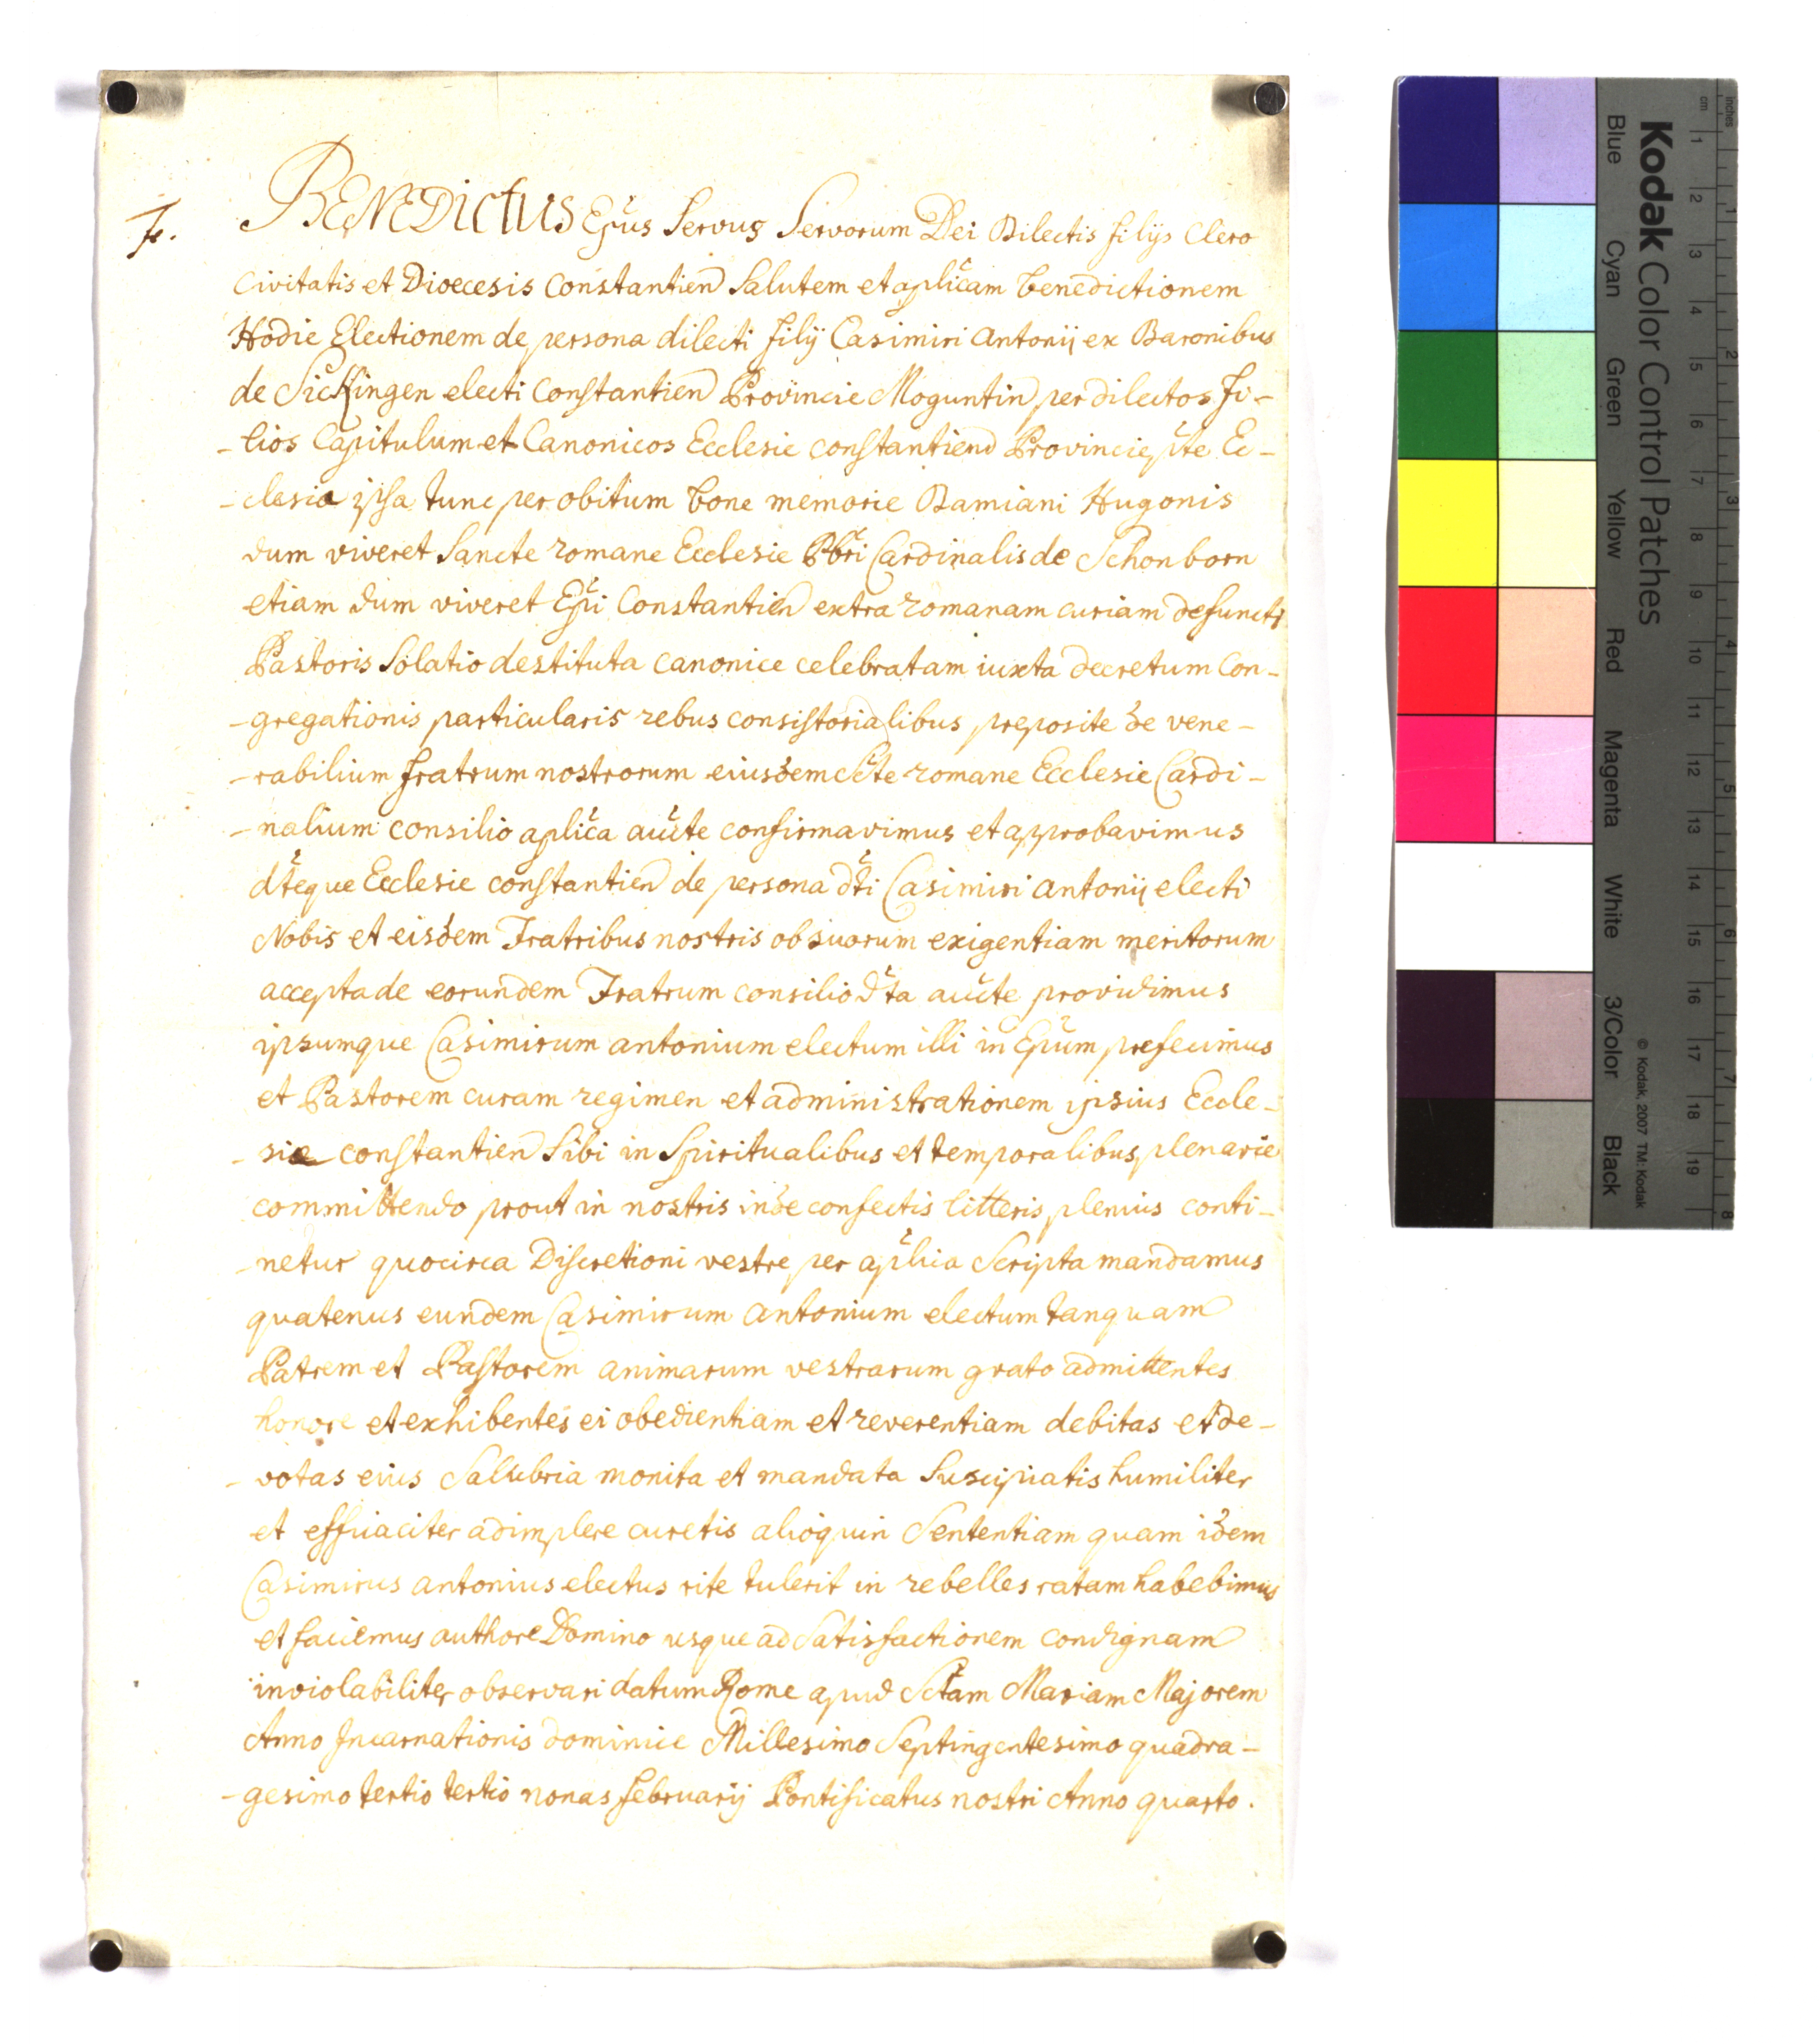 7.
BENEDICTUS Epus Servus Servorum Dei Dilectis filijs Clero
Civitatis et Dioecesis Constantien Salutem et aplicam benedictionem
Hodie Electionem de persona dilecti filij Casimiri Antonij ex Baronibus
de Sickingen electi Constantien Provincie Moguntin per dilectos Fi-
-lios Capitulum et Canonicos Ecclesie constantiend Provincie pte Ec-
-clesia ipsa tunc per obitum bone memorie Damiani Hugonis
dum viveret Sancte romane Ecclesie Pbri Cardinalis de Schonborn
etiam dum viveret Epi Constantien extra romanam curiam defuncti
Pastoris Solatio destituta canonice celebratam iuxta decretum Con-
-gregationis particularis rebus consistorialibus preposite de vene-
-rabilium fratrum nostrorum eiusdem scte romane Ecclesie Cardi-
-nalium consilio aplica aucte confirmavimus et approbavimus
dteque Ecclesie constantien de persona dti Casimiri antonij electi
Nobis et eisdem Fratribus nostris ob suorum exigentiam meritorum
accepta de eorundem Fratrum consilio dta aucte providimus
ipsumque Casimirum antonium electum illi in Epum prefecimus
et Pastorem curam regimen et administrationem ipsius Eccle-
-sie constantien Sibi in Spiritualibus et temporalibus plenarie
committendo prout in nostris inde confectis litteris plenius conti-
-netur quocirca Discretioni vestre per aplica Scripta mandamus
quatenus eundem Casimirum Antonium electum tanquam
Patrem et Pastorem animarum vestrarum grato admittentes
honore et exhibentes ei obedientiam et reverentiam debitas et de-
-votas eius Salubria monita et mandata Suscipiatis humiliter
et efficaciter adimplere curetis alioquin Sententiam quam idem
Casimirus antonius electus rite tulerit in rebelles ratam habebimus
et faciemus authore Domino usque ad Satisfactionem condignam
inviolabiliter observari datum Rome apud Sctam Mariam Majorem
Anno Incarnationis dominice Millesimo Septingentesimo quadra-
-gesimo tertio tertio nonas februarij Pontificatus nostri Anno quarto.
Kodak Color Control Patches
© Kodak, 2007 TM: Kodak
Blue Cyan Green Yellow Red Magenta White 3/Color Black
inches 1 2 3 4 5 6 7 8
cm 1 2 3 4 5 6 7 8 9 10 11 12 13 14 15 16 17 18 19